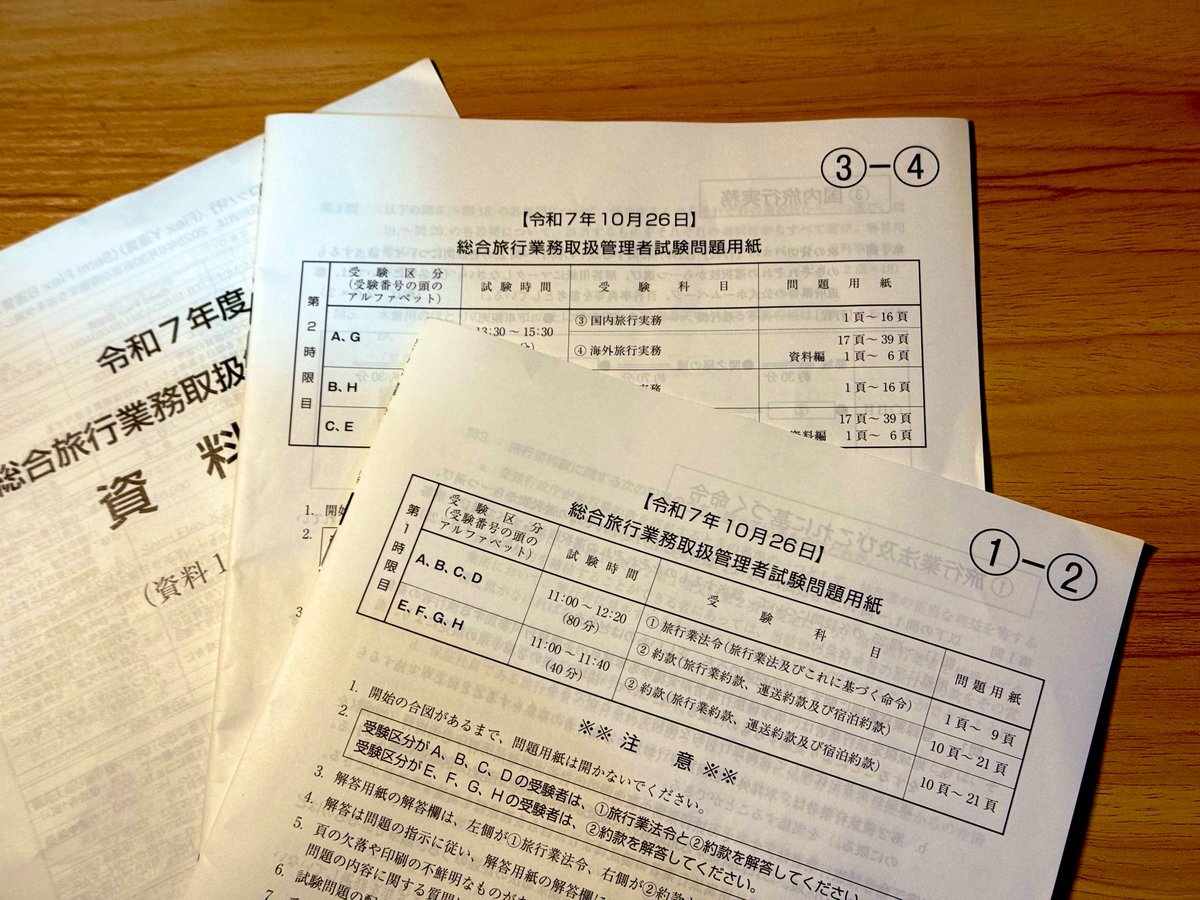 令和7年度
総合旅行業務取扱
資料
(資料1
③−④
【令和7年10月26日】
総合旅行業務取扱管理者試験問題用紙
第2時限目
受験区分
(受験番号の頭の
アルファベット)
試験時間
受験科目
問題用紙
A、G
13:30～15:30
③ 国内旅行実務
1頁～16頁
④ 海外旅行実務
17頁～39頁
資料編 1頁～ 6頁
B、H
実務
1頁～16頁
C、E
17頁～39頁
資料編 1頁～ 6頁
1. 開始
2.
3
①−②
【令和7年10月26日】
総合旅行業務取扱管理者試験問題用紙
第1時限目
受験区分
(受験番号の頭の
アルファベット)
試験時間
受験科目
問題用紙
A、B、C、D
11:00～12:20
(80分)
① 旅行業法令(旅行業法及びこれに基づく命令)
1頁～ 9頁
② 約款(旅行業約款、運送約款及び宿泊約款)
10頁～21頁
E、F、G、H
11:00～11:40
(40分)
② 約款(旅行業約款、運送約款及び宿泊約款)
10頁～21頁
※※ 注 意 ※※
1. 開始の合図があるまで、問題用紙は開かないでください。
2. 受験区分がA、B、C、Dの受験者は、①旅行業法令と②約款を解答してください。
受験区分がE、F、G、Hの受験者は、②約款を解答してください。
3. 解答用紙の解答欄は、左側が①旅行業法令、右側が②約款
4. 解答は問題の指示に従い、解答用紙の解答欄に
5. 頁の欠落や印刷の不鮮明なものがあ
問題の内容に関する質問
6. 試験問題の配
7.